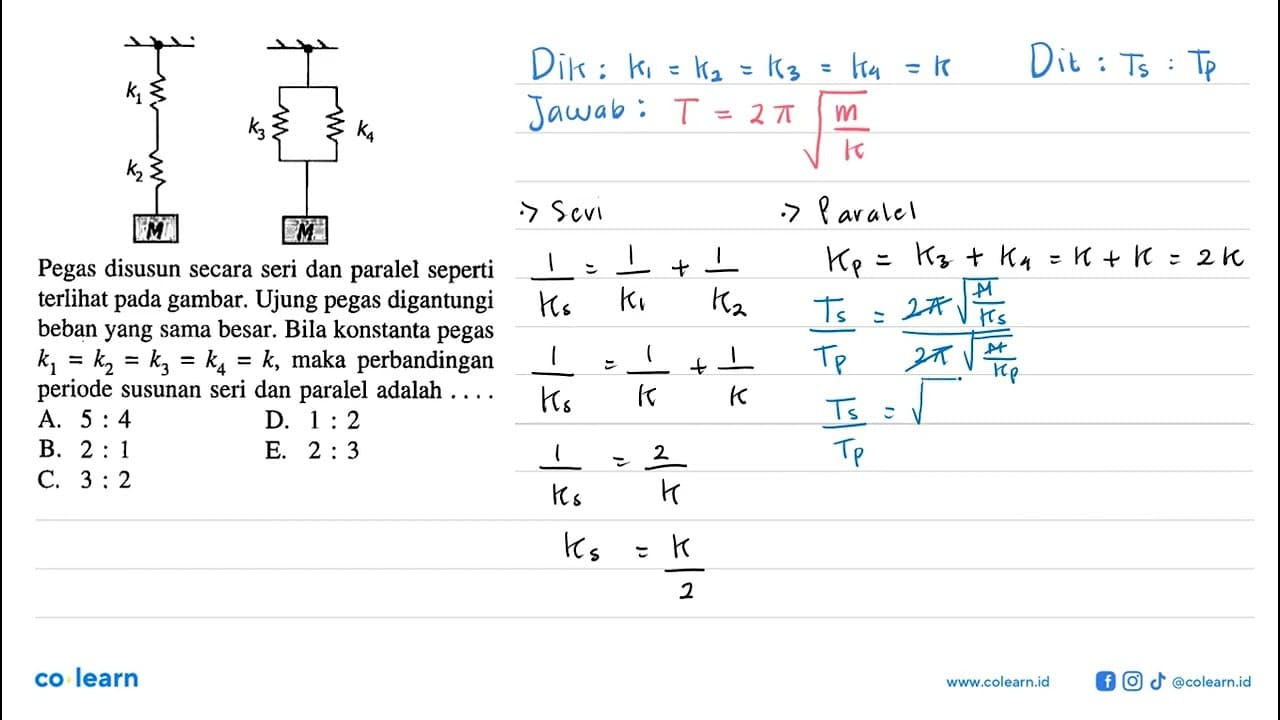 k₁
k₂
M
k₃
k₄
M
Pegas disusun secara seri dan paralel seperti
terlihat pada gambar. Ujung pegas digantungi
beban yang sama besar. Bila konstanta pegas
k₁ = k₂ = k₃ = k₄ = k, maka perbandingan
periode susunan seri dan paralel adalah . . . .
A. 5 : 4 D. 1 : 2
B. 2 : 1 E. 2 : 3
C. 3 : 2
Dik : k₁ = k₂ = k₃ = k₄ = k Dit : Ts : Tp
Jawab : T = 2π √(m/k)
·> Seri
1/ks = 1/k₁ + 1/k₂
1/ks = 1/k + 1/k
1/ks = 2/k
ks = k/2
·> Paralel
kp = k₃ + k₄ = k + k = 2k
Ts/Tp = 2π√(M/ks) / 2π√(M/kp)
Ts/Tp = √
co learn
www.colearn.id
@colearn.id